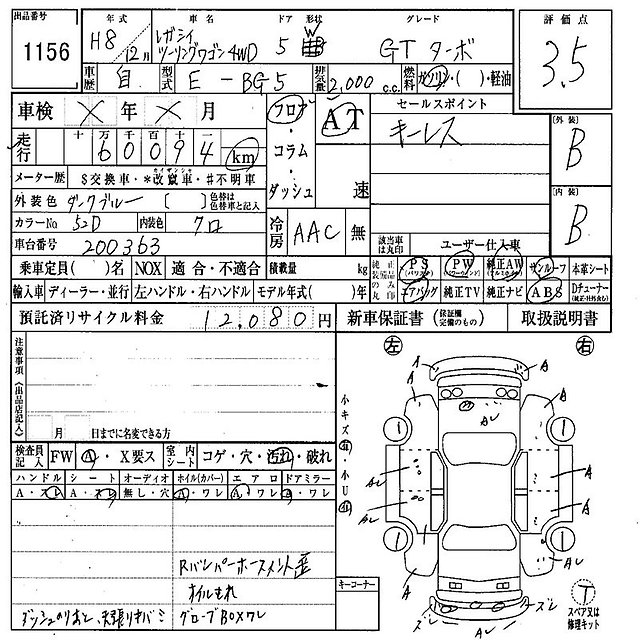 出品番号 年式 車名 ドア 形状 グレード 評価点
1156 H8/12月 レガシィ ツーリングワゴン4WD 5 W GT ターボ 3.5
車歴 自 型式 E-BG5 排気量 2,000 c.c. 燃料 ガソリン・( )・軽油
車検 × 年 × 月 フロア・コラム・ダッシュ AT 速 セールスポイント [外装] B
キーレス
走行 十 万 千 百 十 一
60094 km
メーター歴 $交換車・*改竄車・#不明車
カイザンシャ
外装色 ダークブルー [ ] 色替は色替車と記入 [内装] B
カラーNo 52D 内装色 クロ 冷房 AAC 無
車台番号 200363 該当車は丸印 ユーザー仕入車
乗車定員( )名 NOX 適合・不適合 積載量 kg 純正装備品のみ丸印 PS(パワステ) PW(パワーウィンド) 純正AW(アルミホイル) サンルーフ 本革シート
輸入車 ディーラー・並行 左ハンドル・右ハンドル モデル年式( )年 エアバッグ 純正TV 純正ナビ ABS Dチューナー(純正・社外含む)
預託済リサイクル料金 12,080円 新車保証書(保証欄完備のもの) 取扱説明書
注意事項(出品店記入)
月 日までに名変できる方
小キズA・小U A
左 右
検査員記入 FW A・X要ス 室内シート コゲ・穴・汚れ・破れ
ハンドル シート オーディオ ホイル(カバー) エアロ ドアミラー
A・スレ A・スレ 無し・穴 A・ワレ A・ワレ A・ワレ
Rバンパーホースメント歪
オイルもれ
ダッシュのりあと、天張りキバミ グローブBOXワレ
キーコーナー
A A A A AL
AL A
AL A
A AL
ズレ AL ズレ AL
T
スペア又は修理キット